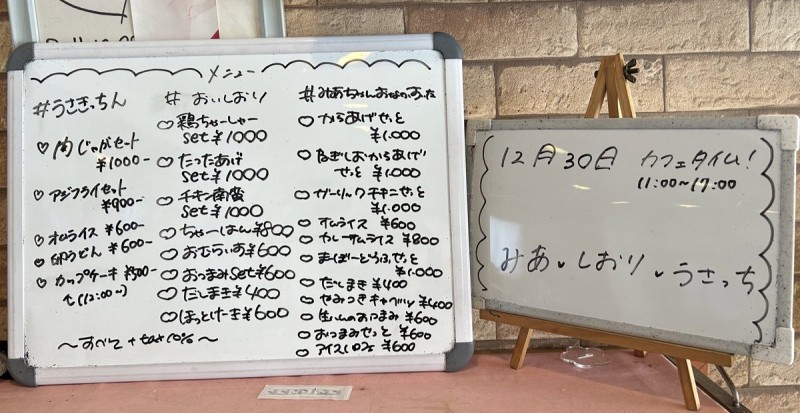 メニュー
#うさきっちん
♡ 肉じゃがセット
¥1000-
♡ アジフライセット
¥900-
♡ オムライス ¥600-
♡ 卵うどん ¥600-
♡ カップケーキ ¥500-
(12:00~)
〜すべて + tax 10%〜
# おいしおり
♡ 鶏ちゃーしゅー
set ¥1000
♡ たったあげ
set ¥1000
♡ チキン南蛮
set ¥1000
♡ ちゃーはん ¥800
♡ おむらいす ¥600
♡ おつまみset ¥600
♡ だしまき ¥400
♡ ほっとけーき ¥600
#みあちゃんおなかすいた
♡ からあげせっと
¥1.000
♡ ねぎしおからあげ
せっと ¥1.000
♡ ガーリックチキンせっと
¥1.000
♡ オムライス ¥600
♡ カレーオムライス ¥800
♡ まーぼーどうふせっと
¥1.000
♡ だしまき ¥400
♡ やみつきキャベツ ¥400
♡ 生ハムのおつまみ ¥600
♡ おつまみせっと ¥600
♡ アイスパフェ ¥600
12月30日 カフェタイム!
11:00~17:00
みあ♥しおり♥うさっち